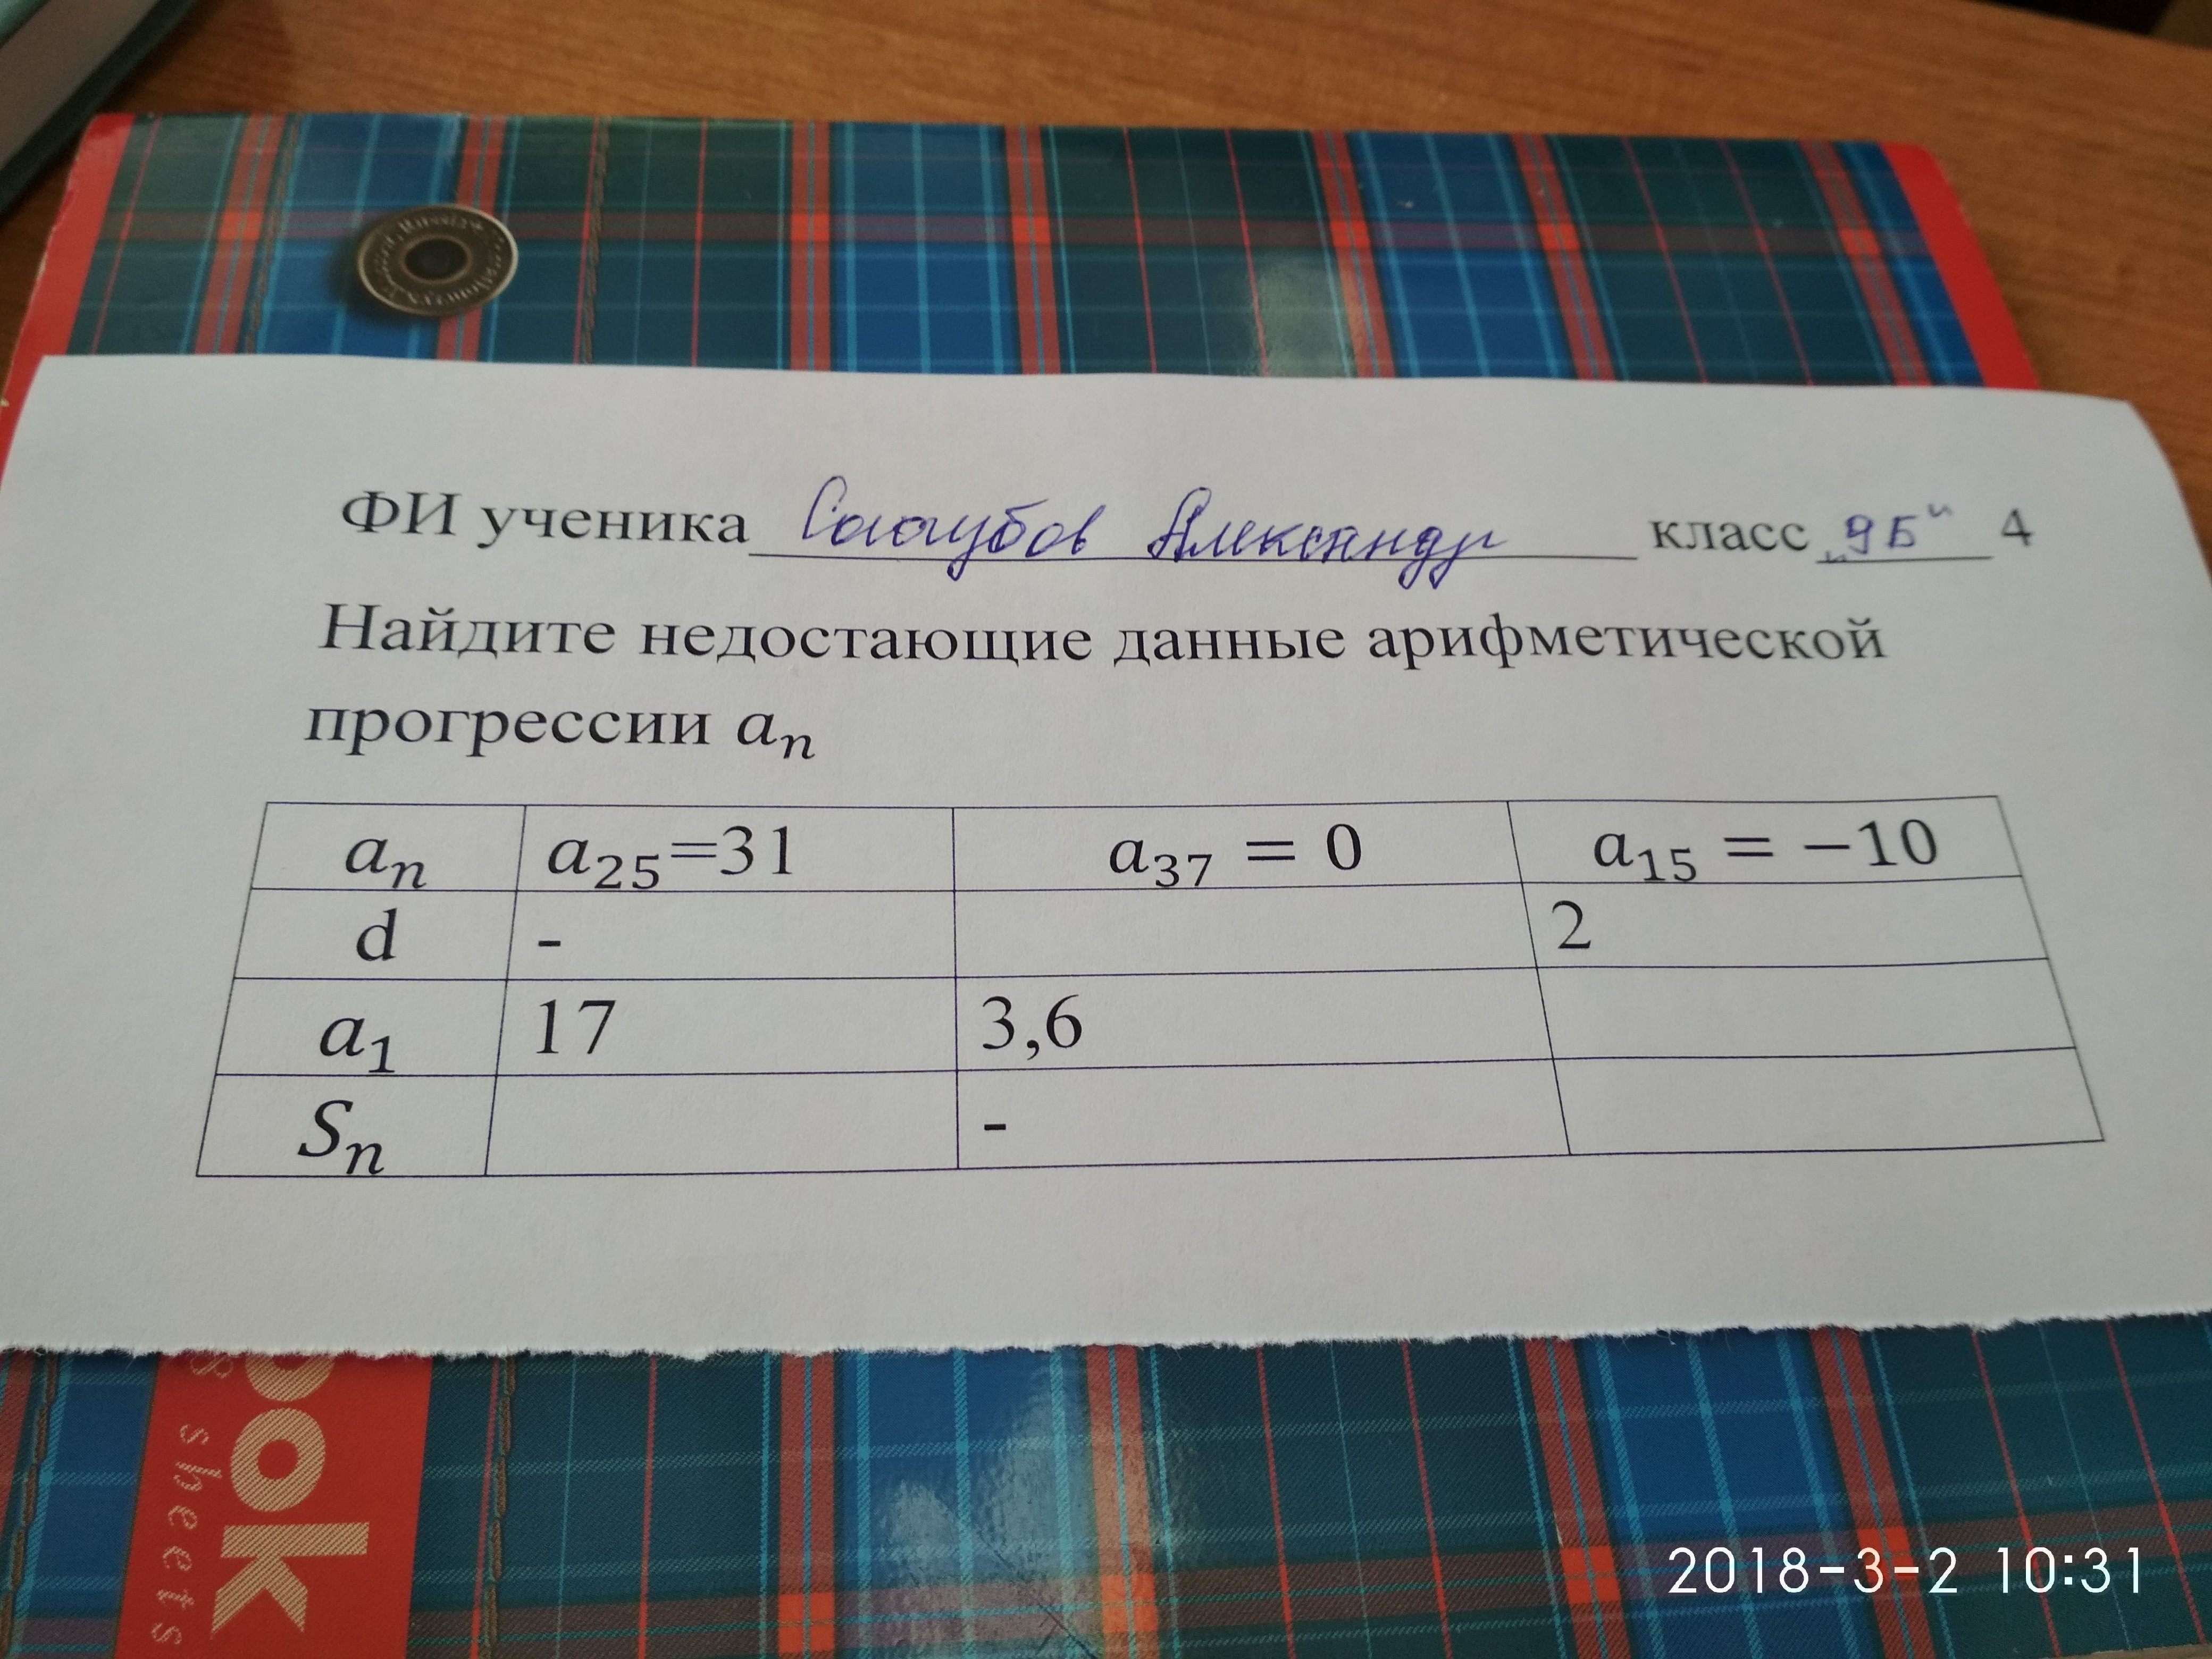 ФИ ученика Сологубов Александр класс „9Б" 4
Найдите недостающие данные арифметической
прогрессии aₙ
aₙ a₂₅=31 a₃₇ = 0 a₁₅ = −10
d - 2
a₁ 17 3,6
Sₙ -
ook
sheets
2018-3-2 10:31